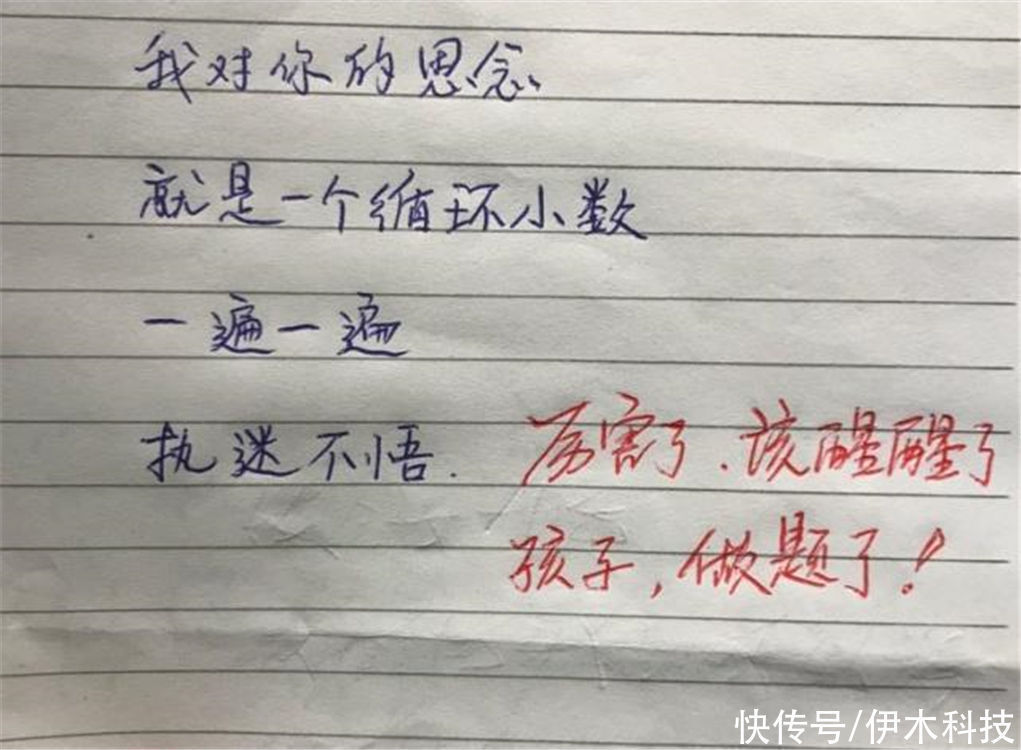 我对你的思念
就是一个循环小数
一遍一遍
执迷不悟. 厉害了.该醒醒了
孩子,做题了!
快传号/伊木科技